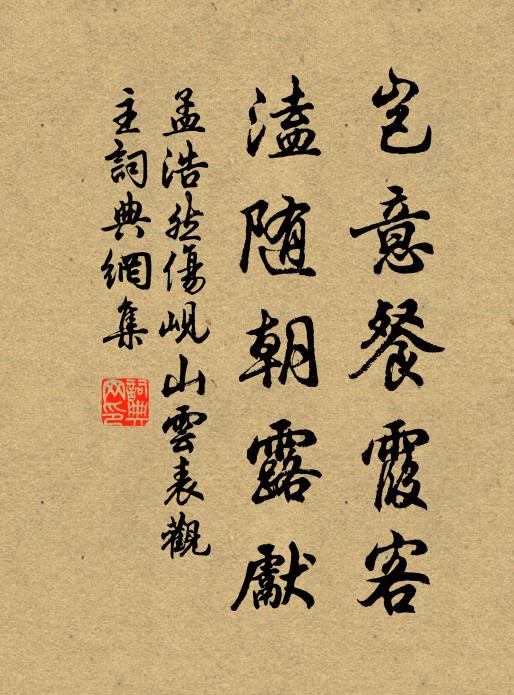 岂意餐霞客
溘随朝露獻
孟浩然傷峴山雲表觀
主詞典網集
詞典
网印